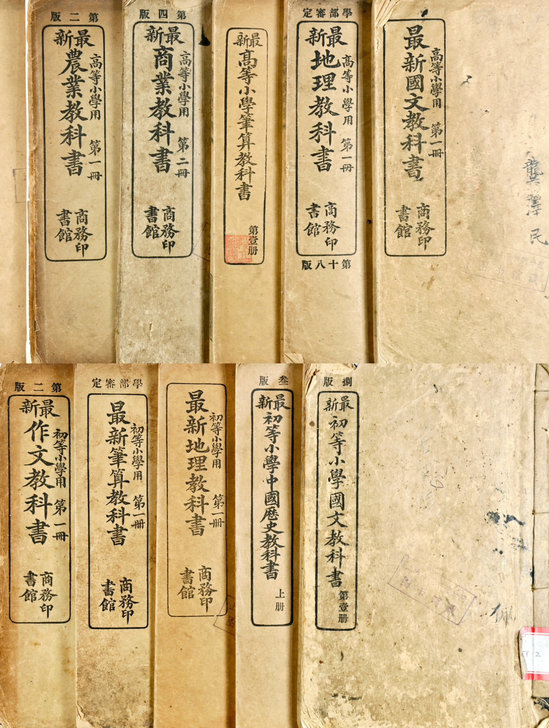 第二版
最新農業教科書
高等小學用 第一冊
商務印
書館
第四版
最新商業教科書
高等小學用 第二冊
商務印
書館
最新高等小學筆算教科書
第壹册
學部審定
最新地理教科書
高等小學用 第一冊
商務印
書館
第十八版
高等小學用 第一冊
最新國文教科書
商務印
書館
龔澤民
第二版
最新作文教科書
初等小學用 第一冊
商務印
書館
學部審定
初等小學用 第一冊
最新筆算教科書
商務印
書館
初等小學用 第一冊
最新地理教科書
商務印
書館
叁版
最新初等小學中國歷史教科書
上册
捌版
最新初等小學國文教科書
第壹册